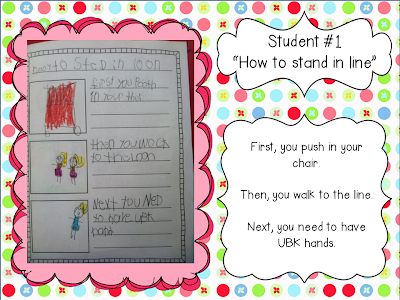 to in
first you
in your
then you
to the
Next you NeD
to have UBK
Student #1
"How to stand in line"
First, you push in your
chair.
Then, you walk to the line.
Next, you need to have
UBK hands.